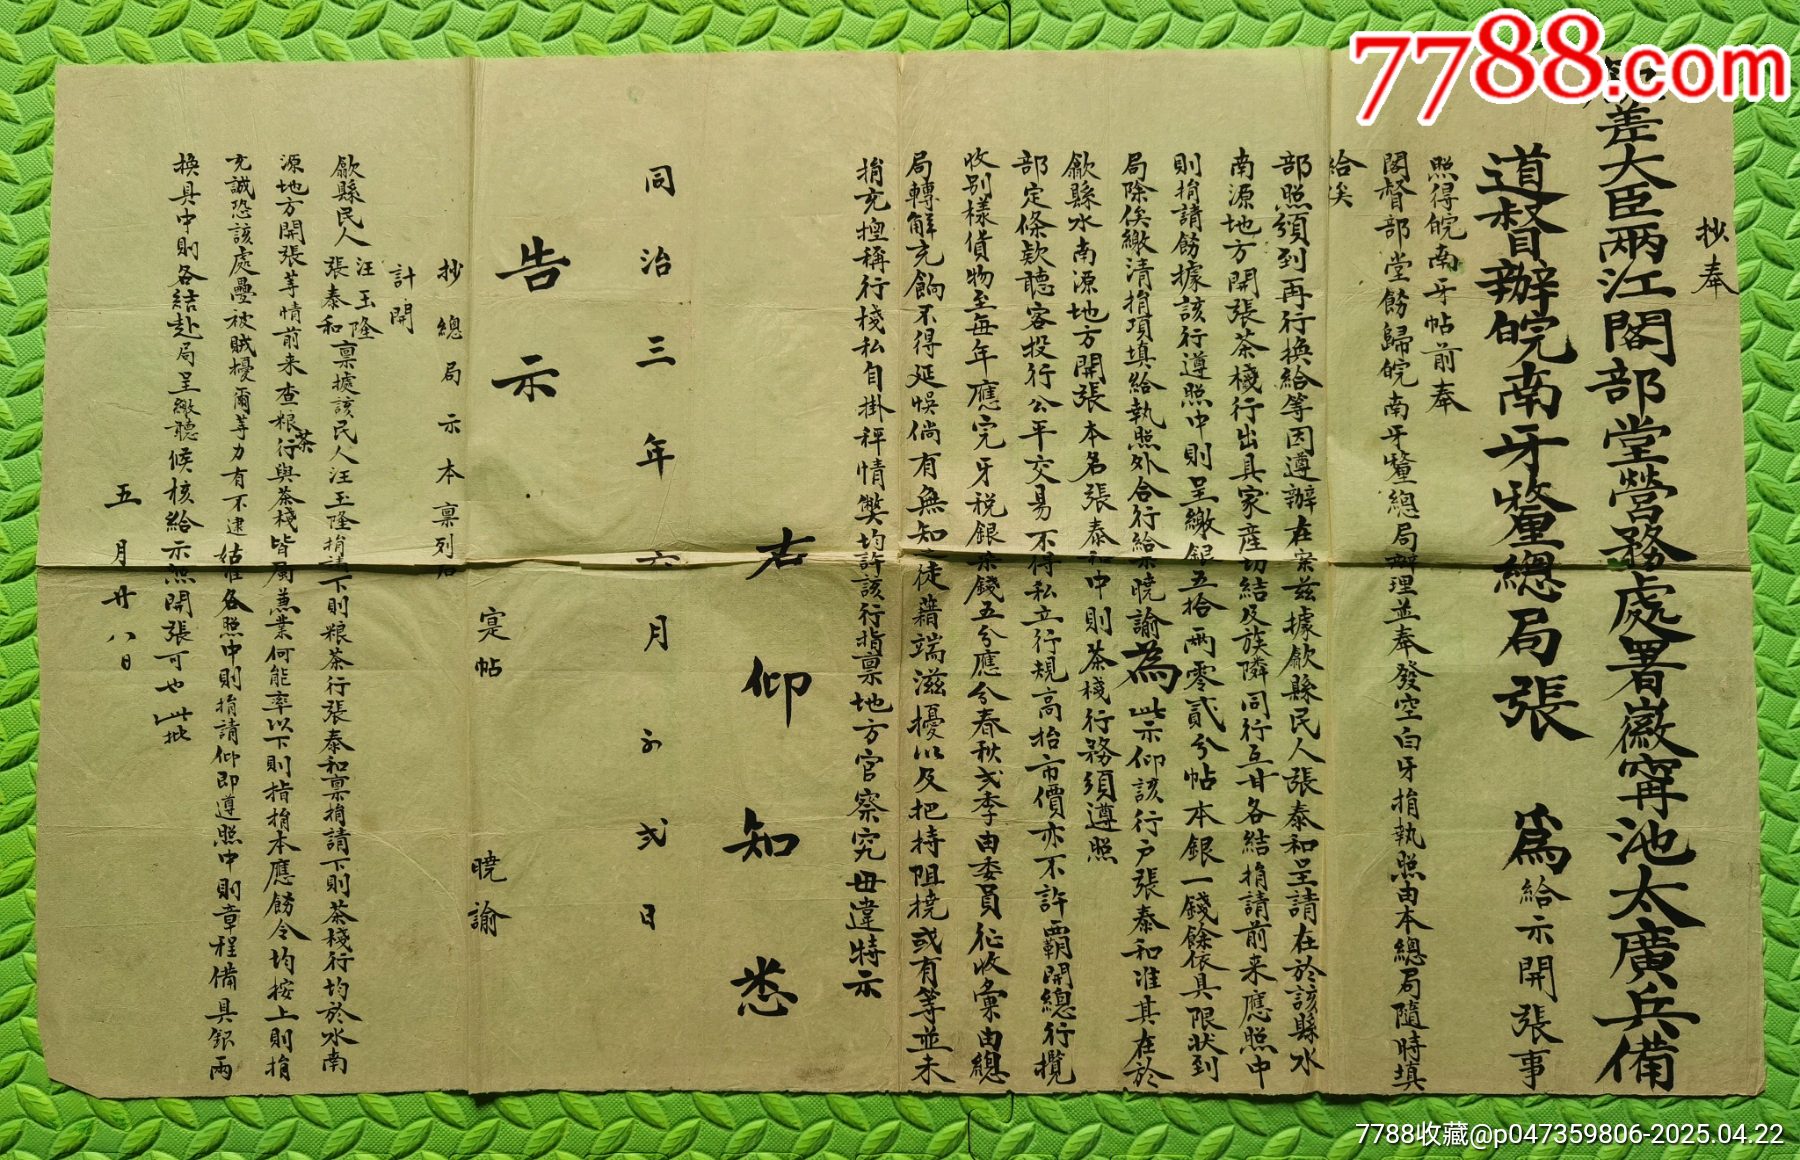 抄奉
欽差大臣兩江閣部堂營務處署徽甯池太廣兵備
道督辦皖南牙釐總局張　為給示開張事
照得皖南牙帖前奉
閣督部堂飭歸皖南牙釐總局辦理並奉發空白牙捐執照由本總局隨時填
給俟
部照頒到再行換給等因遵辦在案茲據歙縣民人張泰和呈請在於該縣水
南源地方開張茶棧行出具家產切結及族隣同行互甘各結捐請前來應照中
則捐請飭據該行遵照中則呈繳銀五拾兩零貳分帖本銀一錢餘依具限狀到
局除俟繳清捐項填給執照外合行給示曉諭為此示仰該行戶張泰和准其在於
歙縣水南源地方開張本名張泰和中則茶棧行務須遵照
部定條款聽客投行公平交易不得私立行規高抬市價亦不許霸開總行攬
收別樣貨物至每年應完牙稅銀柒錢五分應分春秋弍季由委員征收彙由總
局轉解充餉不得延悞倘有無知之徒藉端滋擾以及把持阻撓或有等並未
捐充擅稱行棧私自掛秤情獘均許該行指禀地方官察究毋違特示
右仰知悉
同治三年六月初弍日
告示
寔帖　曉諭
抄總局示本禀列后
計開
歙縣民人汪玉隆張泰和禀據該民人汪玉隆捐請下則粮茶行張泰和禀捐請下則茶棧行均於水南
源地方開張等情前来查粮茶行與茶棧皆屬兼業何能率以下則指捐本應飭令均按上則捐
充誠恐該處疊被賊擾爾等力有不逮姑准各照中則捐請仰即遵照中則章程備具銀兩
換具中則各結赴局呈繳聽候核給示照開張可也此批
五月廿八日
7788.com
7788收藏@p047359806-2025.04.22